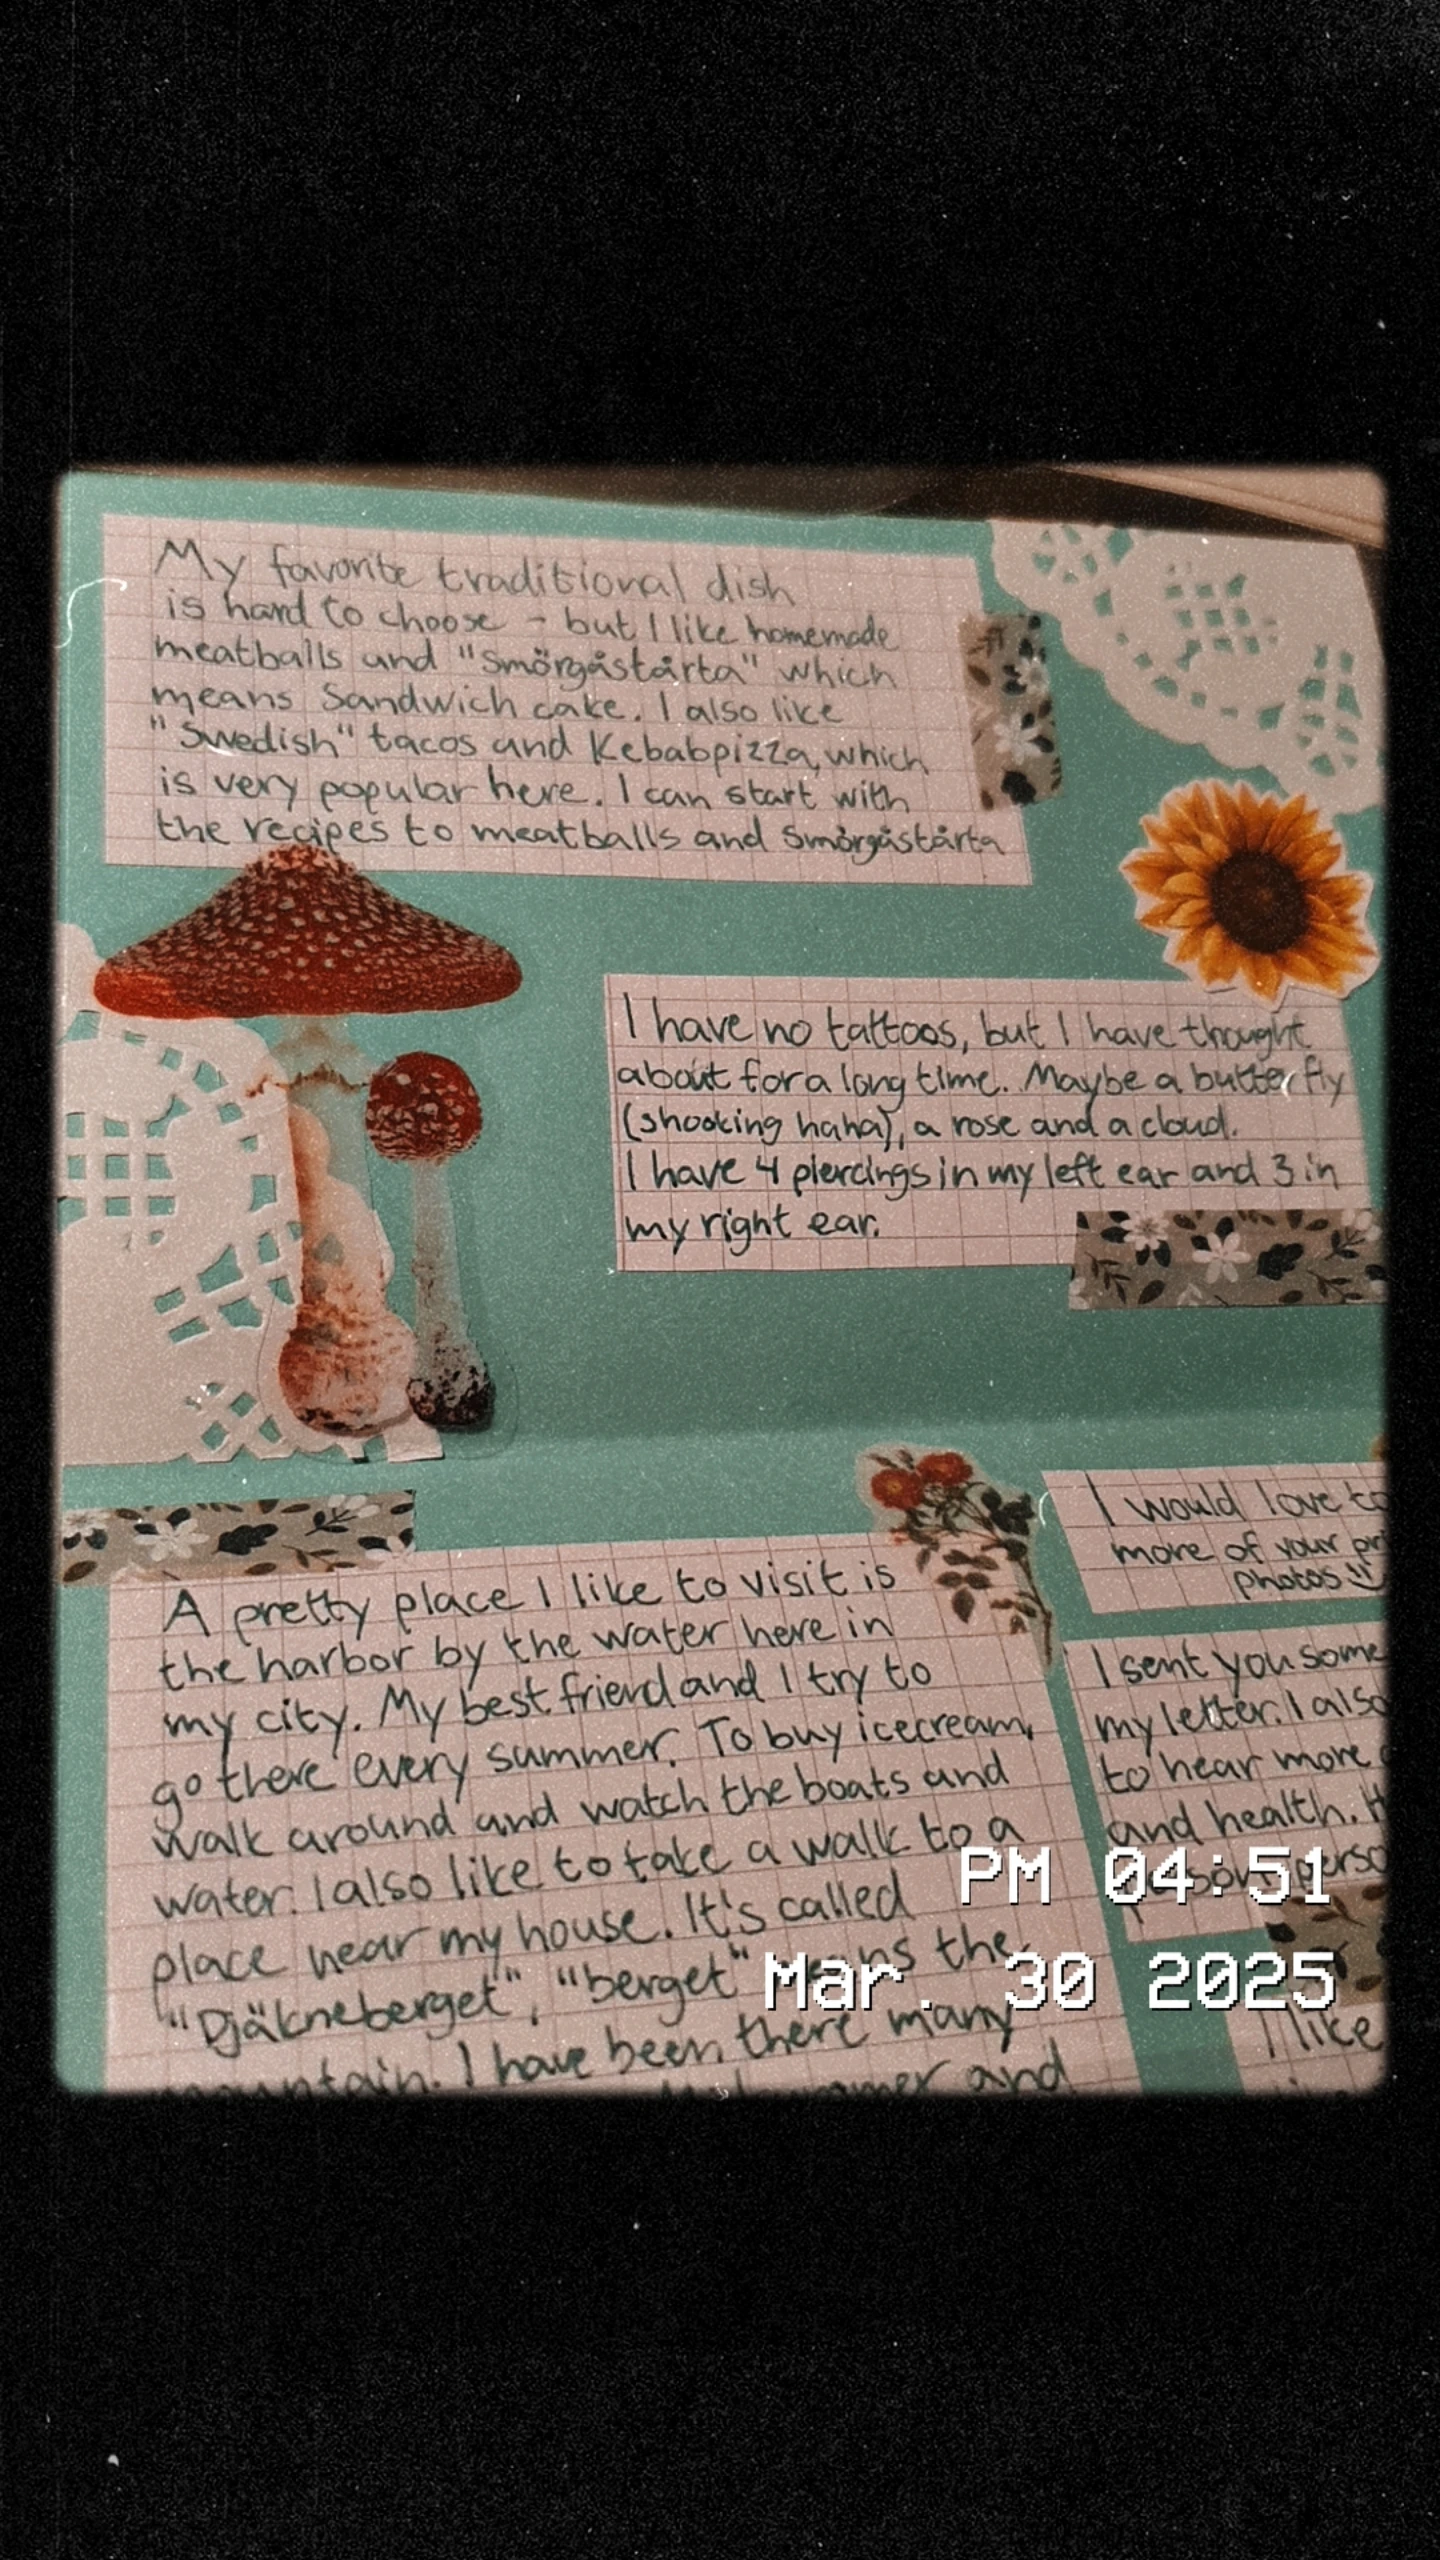 My favorite traditional dish
is hard to choose - but I like homemade
meatballs and "Smörgåstårta" which
means Sandwich cake. I also like
"Swedish" tacos and Kebabpizza, which
is very popular here. I can start with
the recipes to meatballs and Smörgåstårta
I have no tattoos, but I have thought
about for a long time. Maybe a butterfly
(shocking haha), a rose and a cloud.
I have 4 piercings in my left ear and 3 in
my right ear.
A pretty place I like to visit is
the harbor by the water here in
my city. My best friend and I try to
go there every summer. To buy icecream,
walk around and watch the boats and
water. I also like to take a walk to a
place near my house. It's called
"Djäkneberget", "berget" the
mountain. I have been there many
and
I would love to
more of your
photos
I sent you some
my letter. I also
to hear more
and health.
I like
PM 04:51
Mar. 30 2025